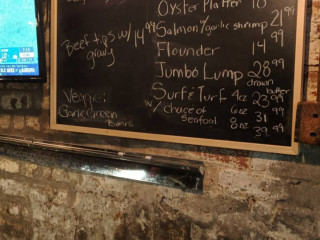 Oyster Platter 18
Salmon w/garlic shrimp 21 99
Flounder 14 99
Jumbo Lump 28 99
drawn butter
Surf & Turf 4oz 23 99
w/ choice of seafood 6oz 31 99
8oz 39 99
Beef tips w/ 14 99
gravy
Veggie:
Garlic Green
Beans